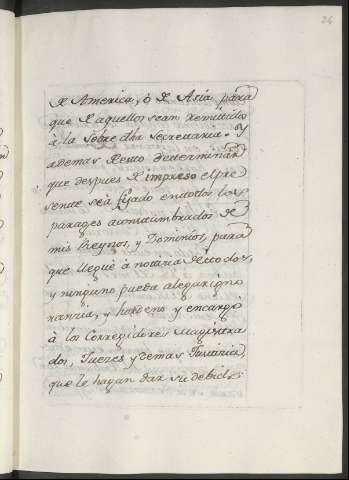 24
de America, ô de Asia, para
que de aquellos sean remitidos
à la Sobre dha Secretaria. Y
ademas de esto determinan
que despues de impreso el pre
sente seà fijado en todos los
parages acostumbrados de
mis Reynos, y Dominios, para
que llegue à notaria de todos,
y ninguno pueda alegar igno
rancia, y hordeno y encargo
à los Corregidores Magistra
dos, Juezes y demas Justicias,
que le hagan dar su debido